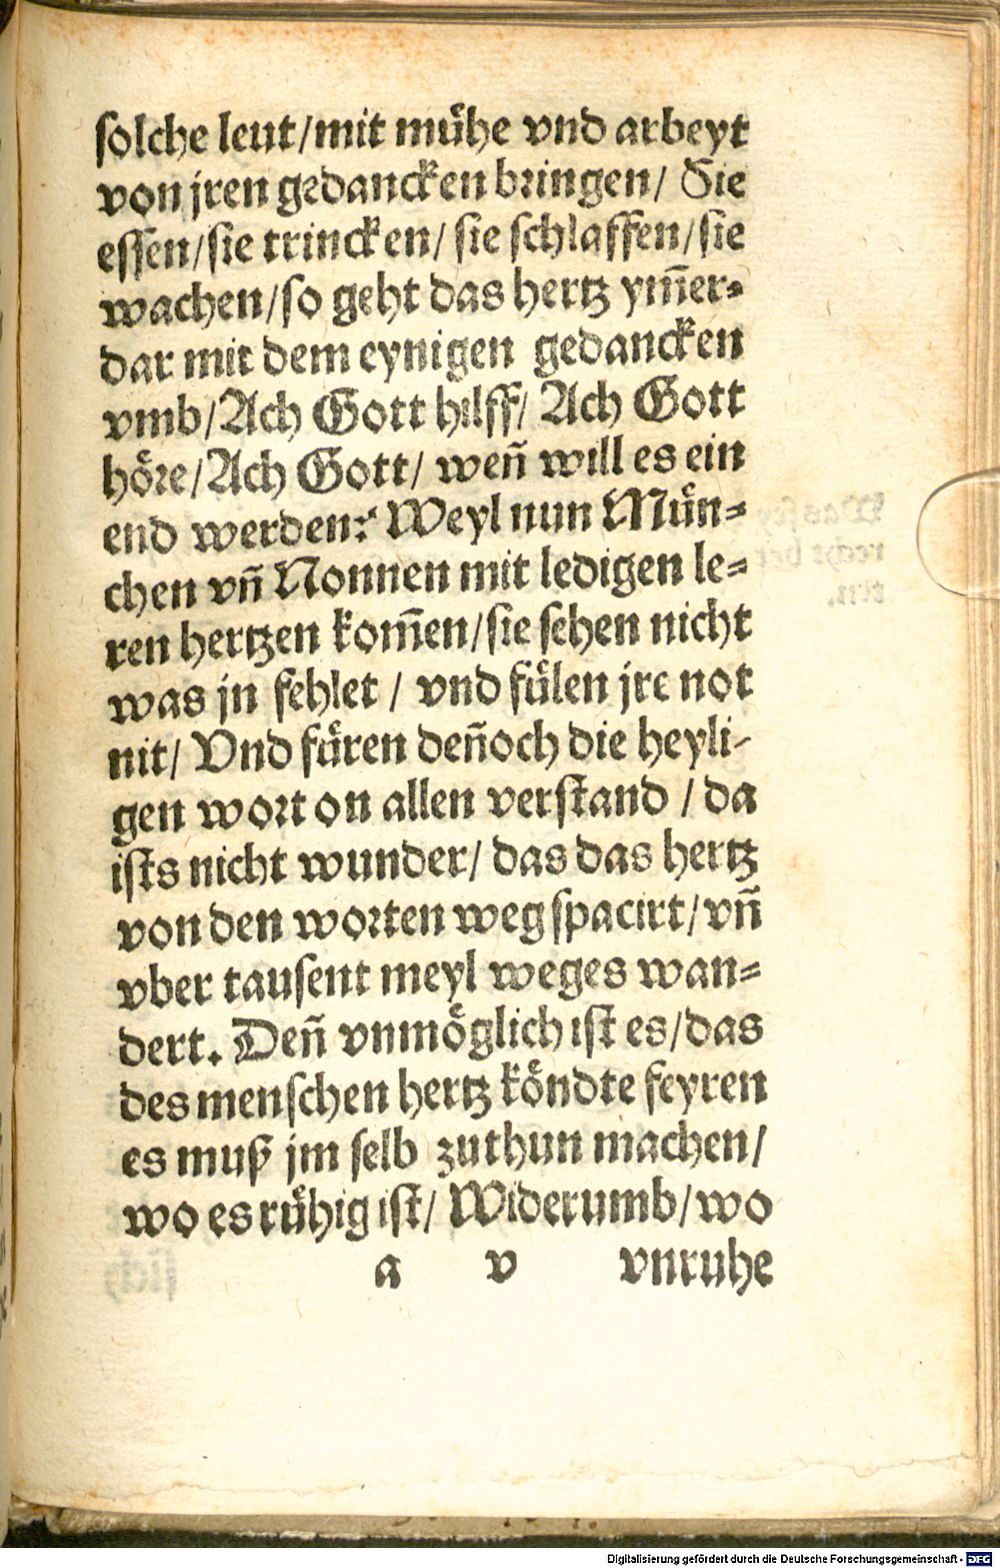 solche leut/mit mühe vnd arbeyt
von jren gedancken bringen/ Sie
essen/sie trincken/ sie schlaffen/sie
wachen/so geht das hertz ym̄er-
dar mit dem eynigen gedancken
vmb/Ach Gott hilff/ Ach Gott
höre/Ach Gott/ weñ will es ein
end werden? Weyl nun Mün-
chen vñ Nonnen mit ledigen le-
ren hertzen kom̄en/sie sehen nicht
was jn fehlet / vnd fülen jre not
nit/ Vnd füren deñoch die heyli-
gen wort on allen verstand / da
ists nicht wunder/ das das hertz
von den worten weg spacirt/ vñ
vber tausent meyl weges wan-
dert. Deñ vnmöglich ist es/das
des menschen hertz köndte feyren
es muß jm selb zuthun machen/
wo es rühig ist/ Widerumb/wo
a v vnruhe
Digitalisierung gefördert durch die Deutsche Forschungsgemeinschaft - DFG